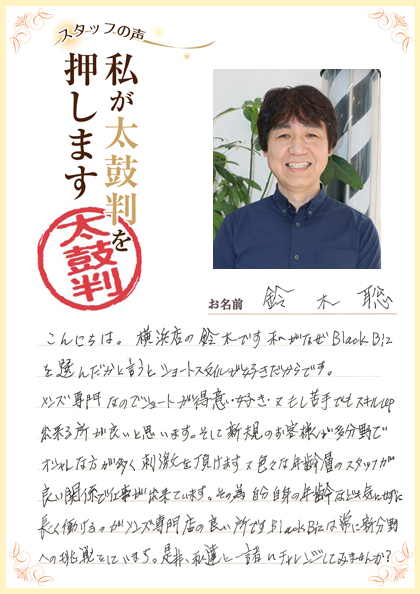 スタッフの声
私が太鼓判を
押します
太鼓判
お名前 鈴木 聡
こんにちは。横浜店の鈴木です 私がなぜBlackBiz
を選んだかと言うとショートスタイルが好きだからです。
メンズ専門なのでショートが得意・好き・又もし苦手でもスキルup
出来る所が良いと思います。そして新規のお客様は多分野で
オシャレな方が多く刺激を頂けます 又色々な年齢層のスタッフが
良い関係で仕事が出来ています。その為自分自身の年齢なども気にせずに
長く働けるのがメンズ専門店の良い所です BlackBizは常に新分野
への挑戦をしています。是非、私達と一緒にチャレンジしてみませんか？